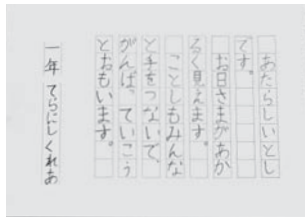 あたらしいとし
です。
お日さまがあか
るく見えます。
ことしもみんな
と手をつないで、
がんば、ていこう
とおもいます。
一年 てらにしくれあ